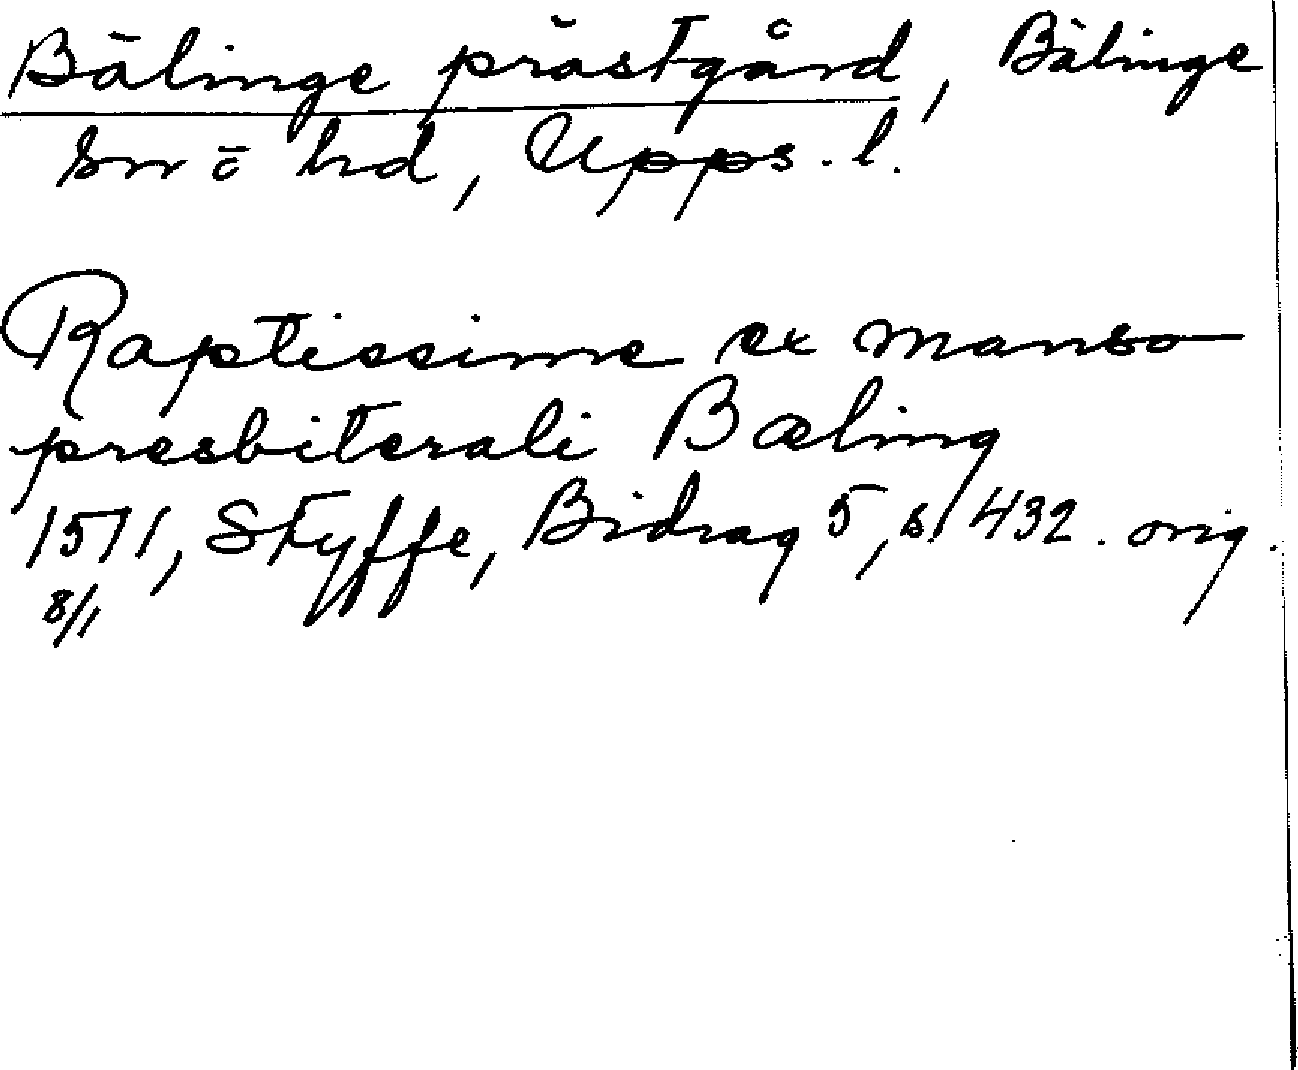 Bälinge prästgård, Bälinge
sn o hd, Upps. l.
Raptissime ex manso
presbiterali Bæling
1511, Styffe, Bidrag 5, s 432. orig.
8/1